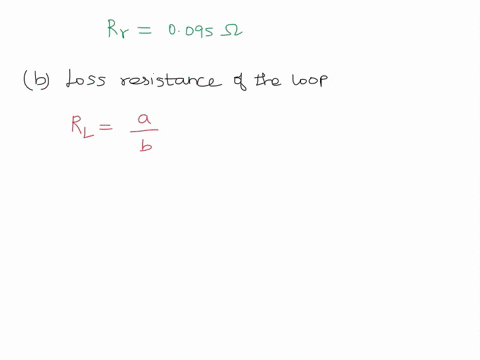 Rr = 0.095 Ω
(b) Loss resistance of the loop
R_L = a/b